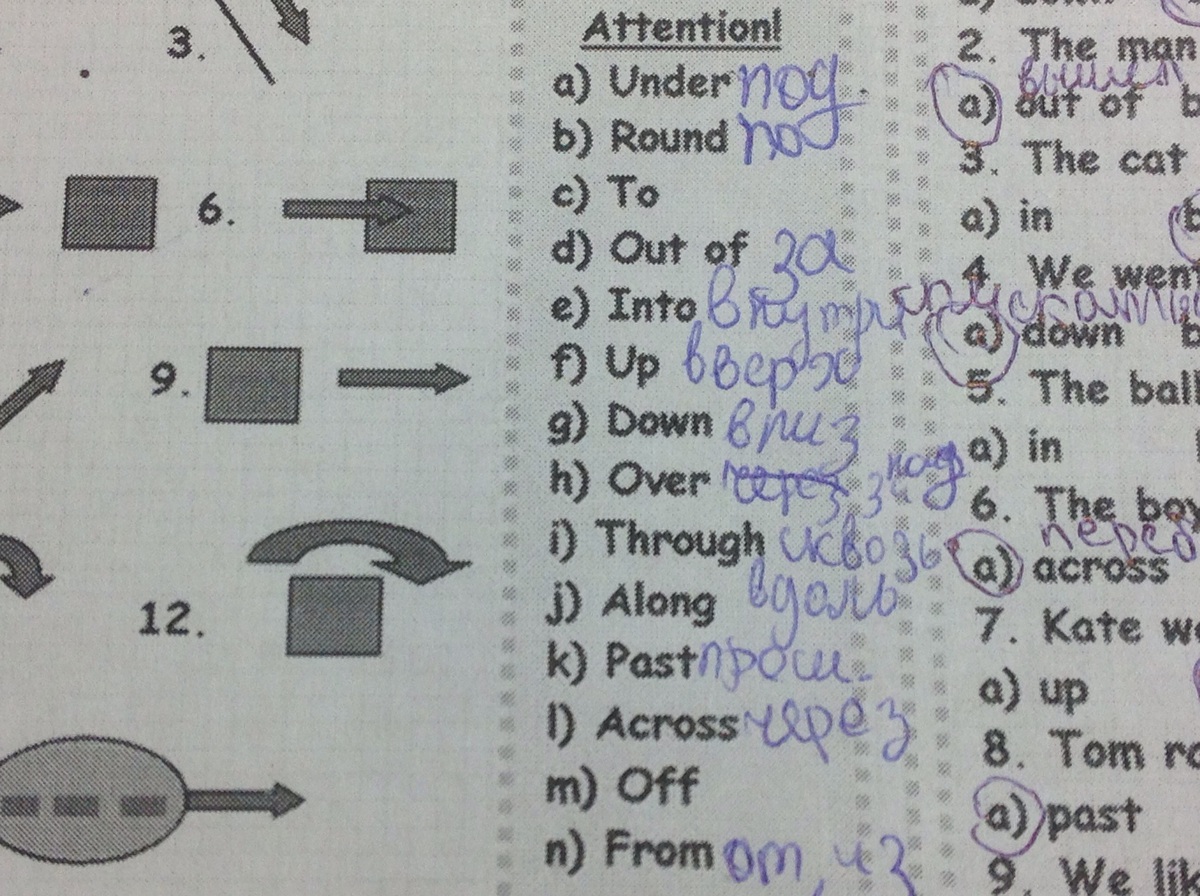 3.
6.
9.
12.
Attention!
a) Under под
b) Round по
c) To
d) Out of за
e) Into внутрь
f) Up вверх
g) Down вниз
h) Over через над
i) Through сквозь
j) Along вдоль
k) Past прош.
l) Across через
m) Off
n) From от, из
2. The man
вышел
a) out of b
3. The cat
a) in
4. We went
спускаться
a) down b
5. The ball
a) in
6. The boy
a) across
7. Kate we
a) up
8. Tom ro
a) past
9. We lik